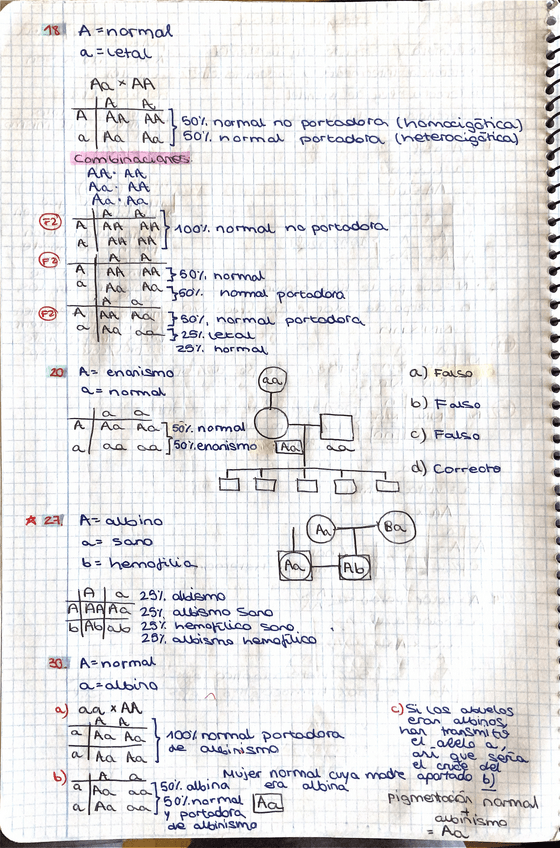 18 A = normal
a = letal
Aa × AA
A A
A AA AA } 50% normal no portadora (homocigótica)
a Aa Aa 50% normal portadora (heterocigótica)
Combinaciones
AA · AA
Aa · AA
Aa · Aa
A A
F2 A AA AA } 100% normal no portadora
A AA AA
F2 A A
A AA AA } 50% normal
a Aa Aa } 50% normal portadora
A a
F2 A AA Aa } 50% normal portadora
a Aa aa } 25% letal
25% normal
20 A = enanismo
a = normal
a a
A Aa Aa 50% normal
a aa aa 50% enanismo
aa
Aa aa
a) Falso
b) Falso
c) Falso
d) Correcto
27. A = albino
a = sano
b = hemofilia
Aa Ba
Aa Ab
A a 25% albismo
A AA Aa 25% albismo sano
b Ab ab 25% hemofílico sano
25% albismo hemofílico
30. A = normal
a = albino
a) aa × AA
A A
a Aa Aa } 100% normal portadora
a Aa Aa de albinismo
b) A a
a Aa aa 50% albina
a Aa aa 50% normal Aa
y portadora
de albinismo
Mujer normal cuya madre
era albina
c) Si los abuelos
eran albinos
han transmito
el alelo a,
así que sería
el cruce del
apartado b)
Pigmentación normal
+
albinismo
= Aa